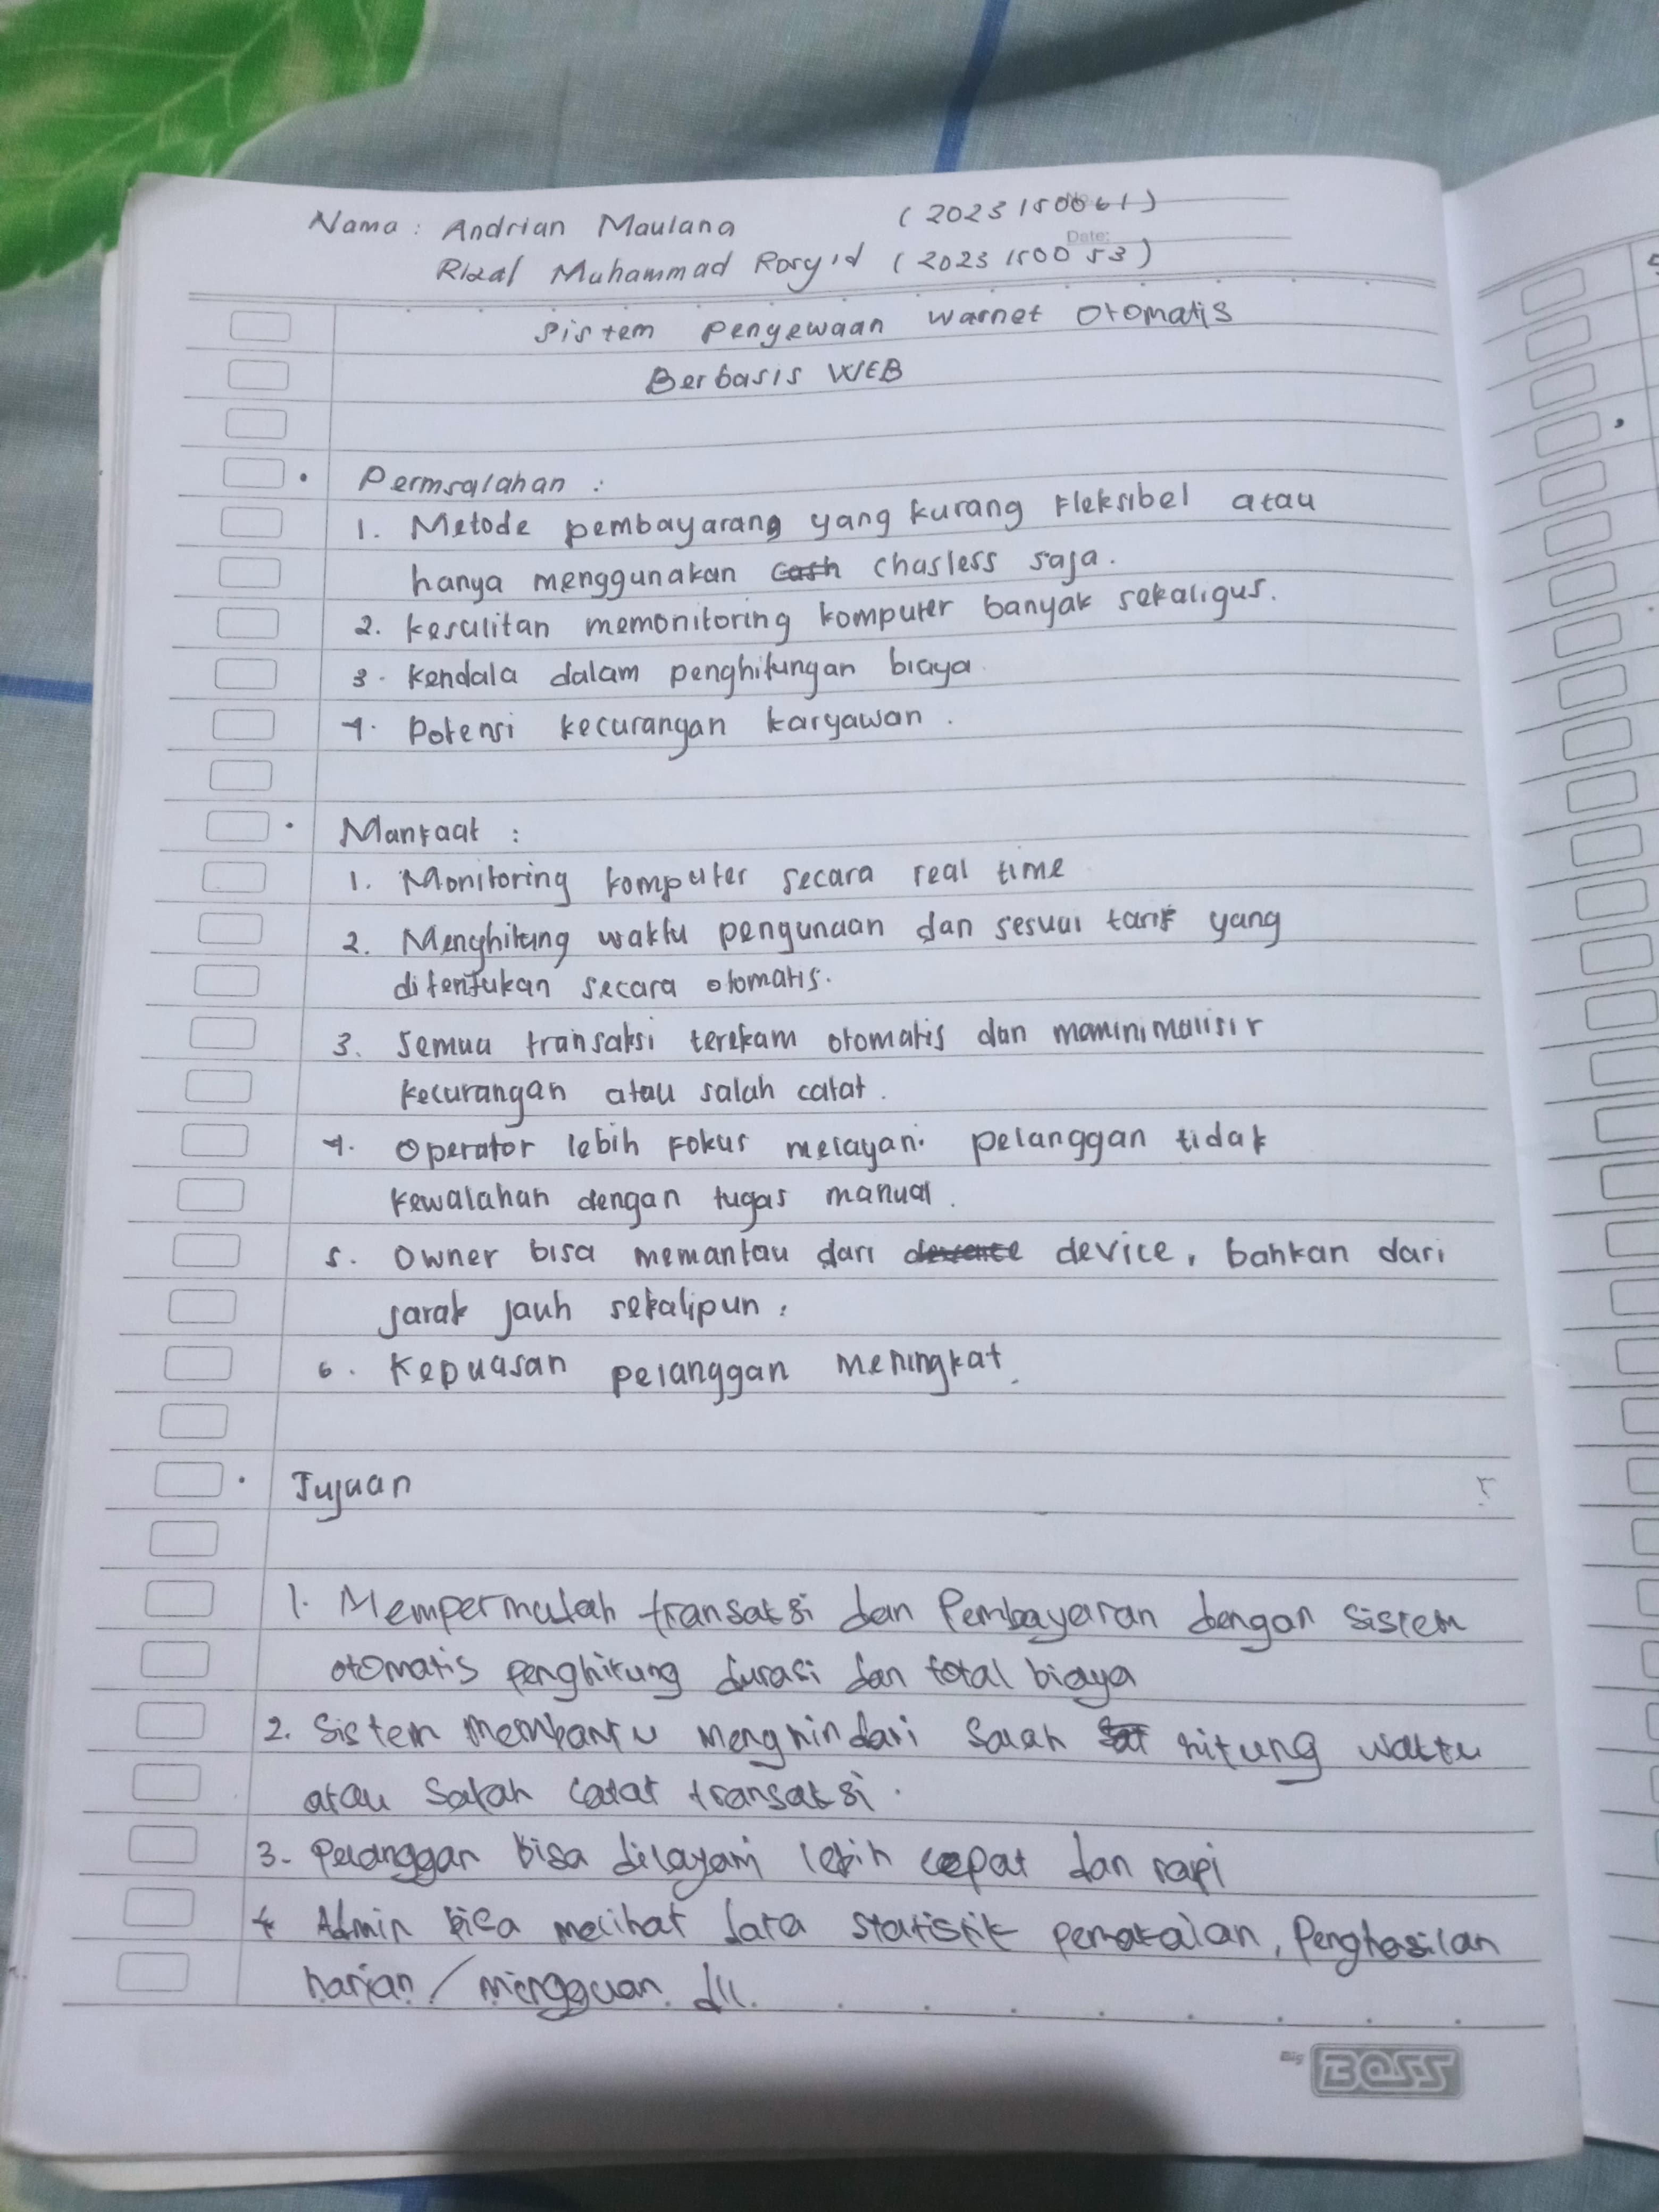 Nama : Andrian Maulana (2023150061)
No
Date:
Rizal Muhammad Rosyid (2023150053)
Sistem Penyewaan Warnet Otomatis
Berbasis WEB
• Permsalahan :
1. Metode pembayarang yang kurang Fleksibel atau
hanya menggunakan cash chasless saja.
2. kesulitan memonitoring komputer banyak sekaligus.
3. kendala dalam penghitungan biaya.
4. Potensi kecurangan karyawan.
• Manfaat :
1. Monitoring komputer secara real time
2. Menghitung waktu pengunaan dan sesuai tarif yang
ditentukan secara otomatis.
3. Semua transaksi terekam otomatis dan meminimalisir
kecurangan atau salah catat.
4. Operator lebih fokus melayani pelanggan tidak
kewalahan dengan tugas manual.
5. Owner bisa memantau dari device, bahkan dari
jarak jauh sekalipun.
6. Kepuasan pelanggan meningkat.
• Tujuan
1. Mempermudah transaksi dan Pembayaran dengan sistem
otomatis penghitung durasi dan total biaya
2. Sistem membantu menghindari Salah hitung waktu
atau Salah catat transaksi.
3. Pelanggan bisa dilayani lebih cepat dan rapi
4 Admin bisa melihat data statistik pemakaian, Penghasilan
harian / mingguan. dll.
Big BOSS